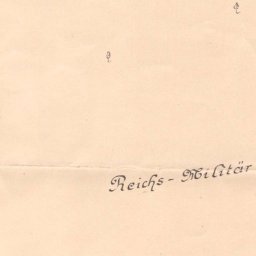 Reichs-Militär